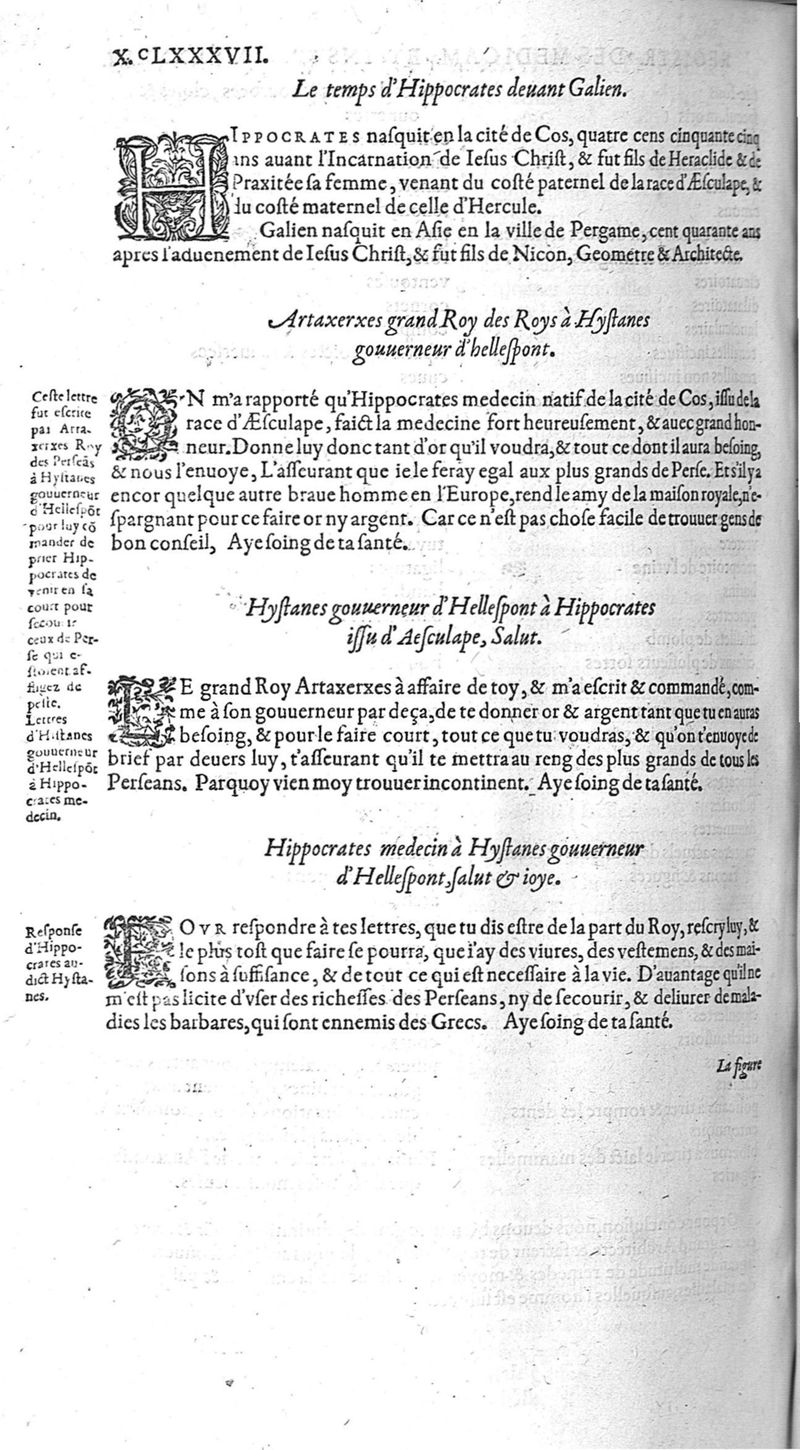 X.ᶜLXXXVII.
Le temps d'Hippocrates deuant Galien.
HIPPOCRATES naſquit en la cité de Cos, quatre cens cinquante cinq
ans auant l'Incarnation de Ieſus Chriſt, & fut fils de Heraclide & de
Praxitée ſa femme, venant du coſté paternel de la race d'Æſculape, &
du coſté maternel de celle d'Hercule.
Galien naſquit en Aſie en la ville de Pergame, cent quarante ans
apres l'aduenement de Ieſus Chriſt, & fut fils de Nicon, Geometre & Architecte.
Artaxerxes grand Roy des Roys à Hyſtanes
gouuerneur d'helleſpont.
Ceſte lettre
fut eſcrite
par Arta-
xerxes Roy
des Perſeãs
à Hyſtanes
gouuerneur
d'Helleſpõt
pour luy cõ
mander de
prier Hip-
pocrates de
venir en ſa
court pour
ſecourir
ceux de Per-
ſe qui e-
ſtoient af-
fligez de
peſte.
ON m'a rapporté qu'Hippocrates medecin natif de la cité de Cos, iſſu de la
race d'Æſculape, faict la medecine fort heureuſement, & auec grand hon-
neur. Donne luy donc tant d'or qu'il voudra, & tout ce dont il aura beſoing,
& nous l'enuoye, L'aſſeurant que ie le feray egal aux plus grands de Perſe. Et s'il y a
encor quelque autre braue homme en l'Europe, rend le amy de la maiſon royale, n'e-
ſpargnant pour ce faire or ny argent. Car ce n'eſt pas choſe facile de trouuer gens de
bon conſeil, Aye ſoing de ta ſanté.
Hyſtanes gouuerneur d'Helleſpont à Hippocrates
iſſu d'Aeſculape, Salut.
Lettres
d'Hiſtanes
gouuerneur
d'Helleſpõt
à Hippo-
crates me-
decin.
LE grand Roy Artaxerxes à affaire de toy, & m'a eſcrit & commandé, com-
me à ſon gouuerneur par deça, de te donner or & argent tant que tu en auras
beſoing, & pour le faire court, tout ce que tu voudras, & qu'on t'enuoye de
brief par deuers luy, t'aſſeurant qu'il te mettra au reng des plus grands de tous les
Perſeans. Parquoy vien moy trouuer incontinent. Aye ſoing de ta ſanté.
Hippocrates medecin à Hyſtanes gouuerneur
d'Helleſpont, ſalut & ioye.
Reſponſe
d'Hippo-
crates au-
dict Hyſta-
nes.
POVR reſpondre à tes lettres, que tu dis eſtre de la part du Roy, reſcry luy, &
le plus toſt que faire ſe pourra, que i'ay des viures, des veſtemens, & des mai-
ſons à ſuffiſance, & de tout ce qui eſt neceſſaire à la vie. D'auantage qu'il ne
m'eſt pas licite d'vſer des richeſſes des Perſeans, ny de ſecourir, & deliurer de mala-
dies les barbares, qui ſont ennemis des Grecs. Aye ſoing de ta ſanté.
La figure